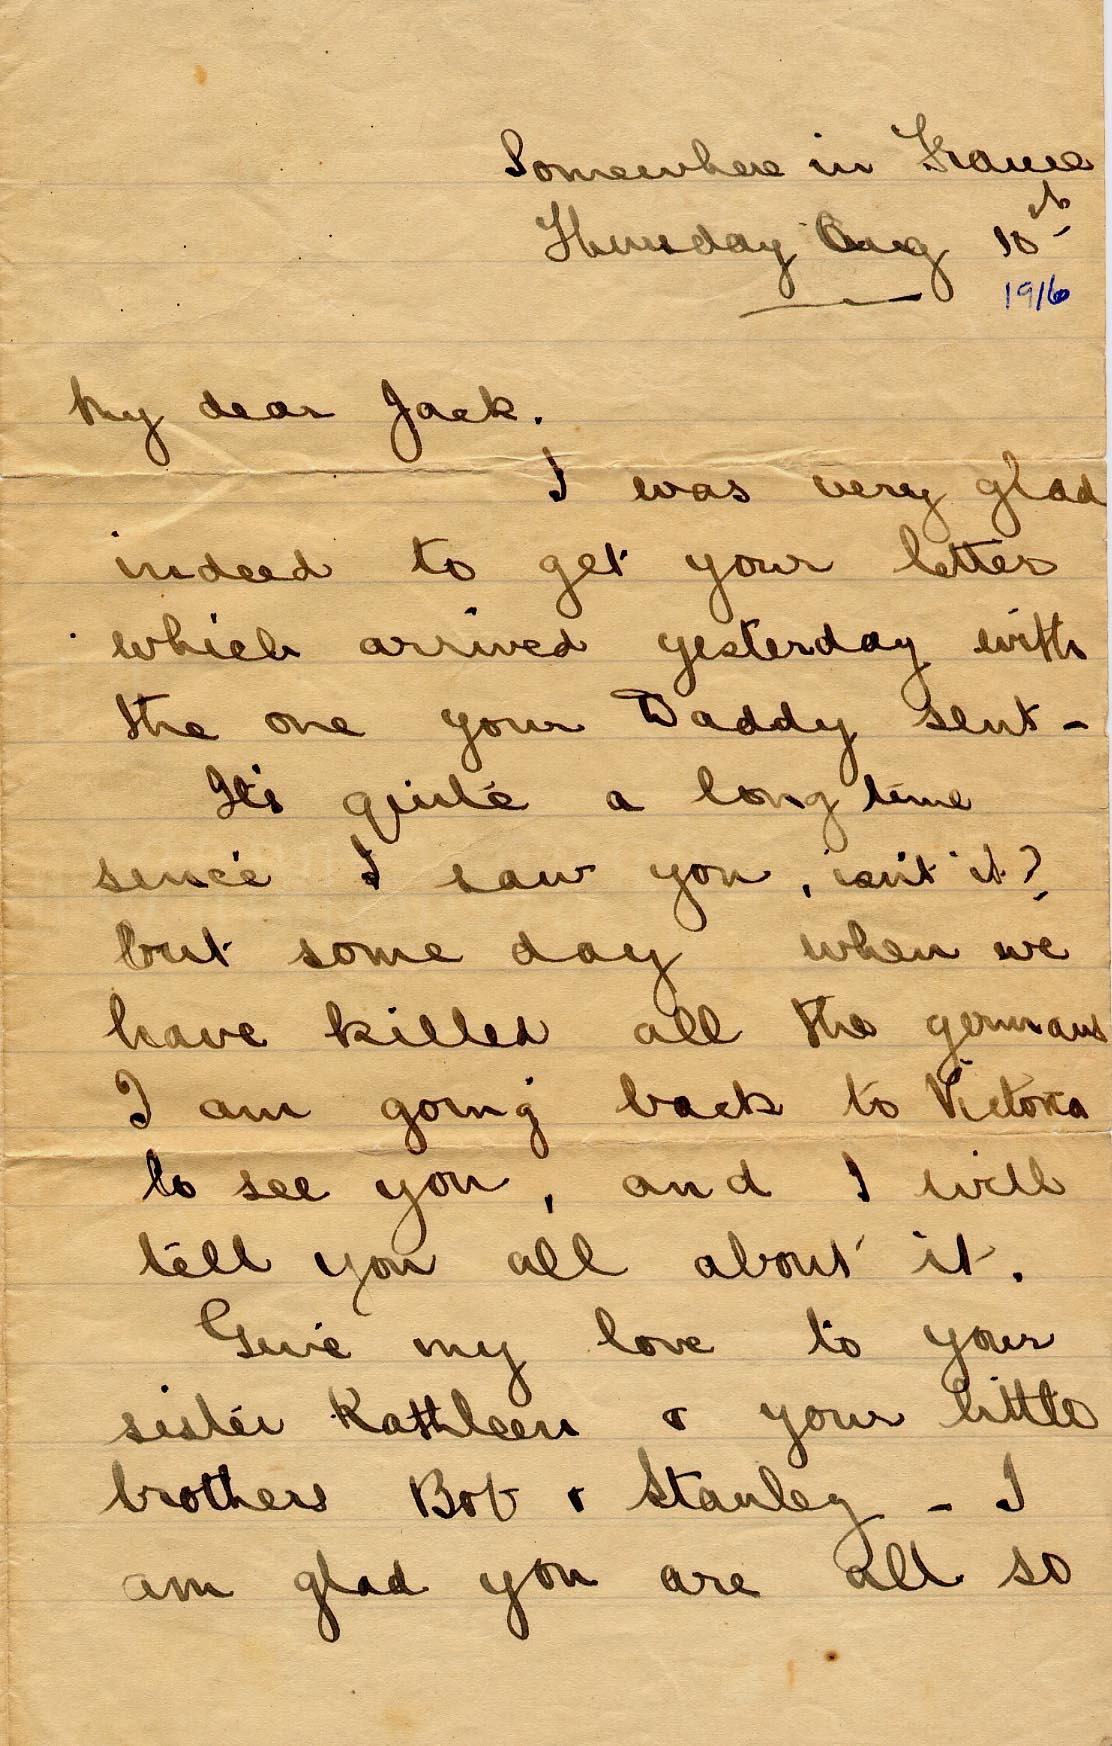 Somewhere in France
Thursday Aug 10th
1916
My dear Jack.
I was very glad
indeed to get your letter
which arrived yesterday with
the one your Daddy sent -
It's quite a long time
since I saw you, isn't it?
but some day when we
have killed all the germans
I am going back to Victoria
to see you, and I will
tell you all about it.
Give my love to your
sister Kathleen & your little
brothers Bob & Stanley - I
am glad you are all so